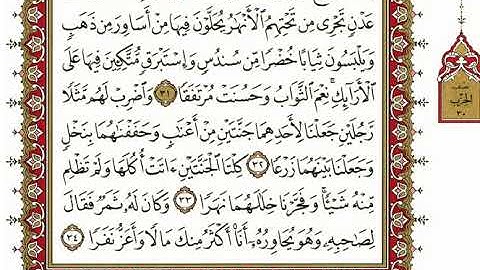 عَدْنٍ تَجْرِى مِن تَحْتِهِمُ ٱلْأَنْهَٰرُ يُحَلَّوْنَ فِيهَا مِنْ أَسَاوِرَ مِن ذَهَبٍ
وَيَلْبَسُونَ ثِيَابًا خُضْرًا مِّن سُندُسٍ وَإِسْتَبْرَقٍ مُّتَّكِـِٔينَ فِيهَا عَلَى
ٱلْأَرَآئِكِ ۚ نِعْمَ ٱلثَّوَابُ وَحَسُنَتْ مُرْتَفَقًا ٣١ وَٱضْرِبْ لَهُم مَّثَلًا
رَّجُلَيْنِ جَعَلْنَا لِأَحَدِهِمَا جَنَّتَيْنِ مِنْ أَعْنَٰبٍ وَحَفَفْنَٰهُمَا بِنَخْلٍ
وَجَعَلْنَا بَيْنَهُمَا زَرْعًا ٣٢ كِلْتَا ٱلْجَنَّتَيْنِ ءَاتَتْ أُكُلَهَا وَلَمْ تَظْلِم
مِّنْهُ شَيْـًٔا ۚ وَفَجَّرْنَا خِلَٰلَهُمَا نَهَرًا ٣٣ وَكَانَ لَهُۥ ثَمَرٌ فَقَالَ
لِصَٰحِبِهِۦ وَهُوَ يُحَاوِرُهُۥٓ أَنَا۠ أَكْثَرُ مِنكَ مَالًا وَأَعَزُّ نَفَرًا ٣٤
الحزب
٣٠